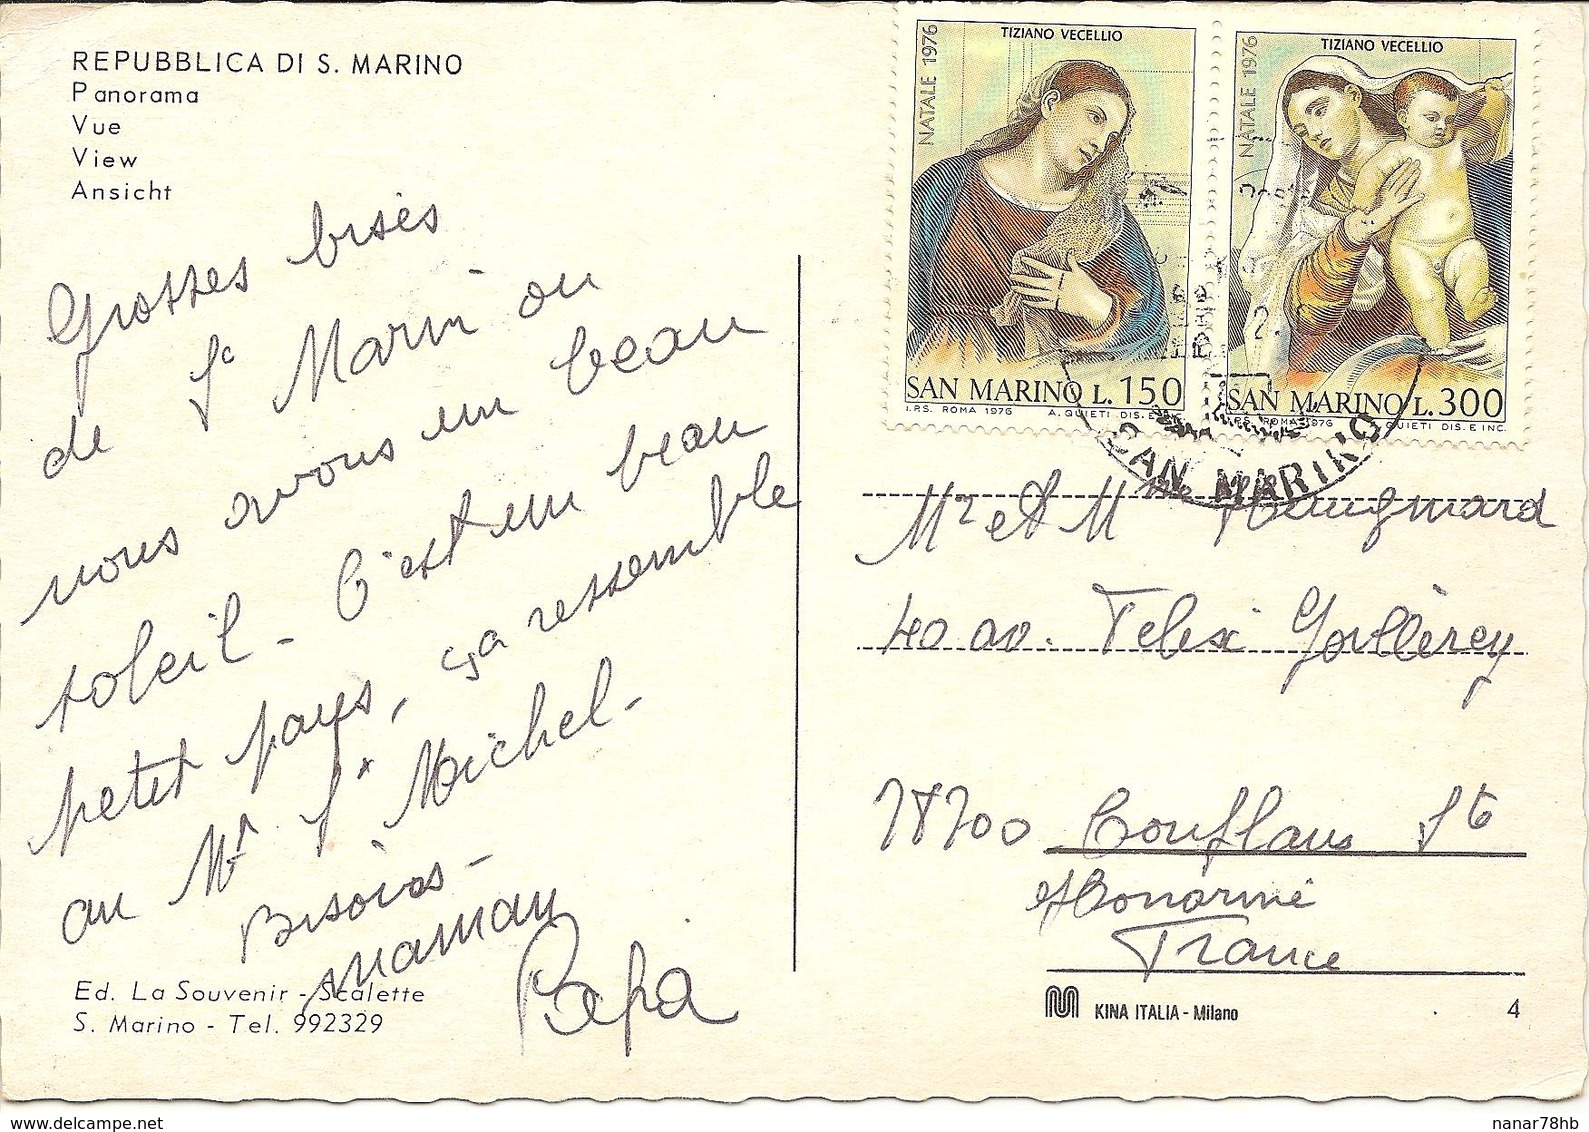 REPUBBLICA DI S. MARINO
Panorama
Vue
View
Ansicht
Grosses bises
de St Marin ou
nous avons un beau
soleil - C'est un beau
petit pays, ça ressemble
au Mt St Michel -
Bisoias -
maman
Papa
Ed. La Souvenir - Scalette
S. Marino - Tel. 992329
NATALE 1976
TIZIANO VECELLIO
SAN MARINO L. 150
I.P.S. ROMA 1976 A. QUIETI DIS. E
NATALE 1976
TIZIANO VECELLIO
SAN MARINO L. 300
I.P.S. ROMA 1976 A. QUIETI DIS. E INC.
SAN MARINO
Mr et Mme
40 av. Felix
78700 Conflans Ste
Honorine
France
KINA ITALIA - Milano
4
nanar78hb
delcampe.net